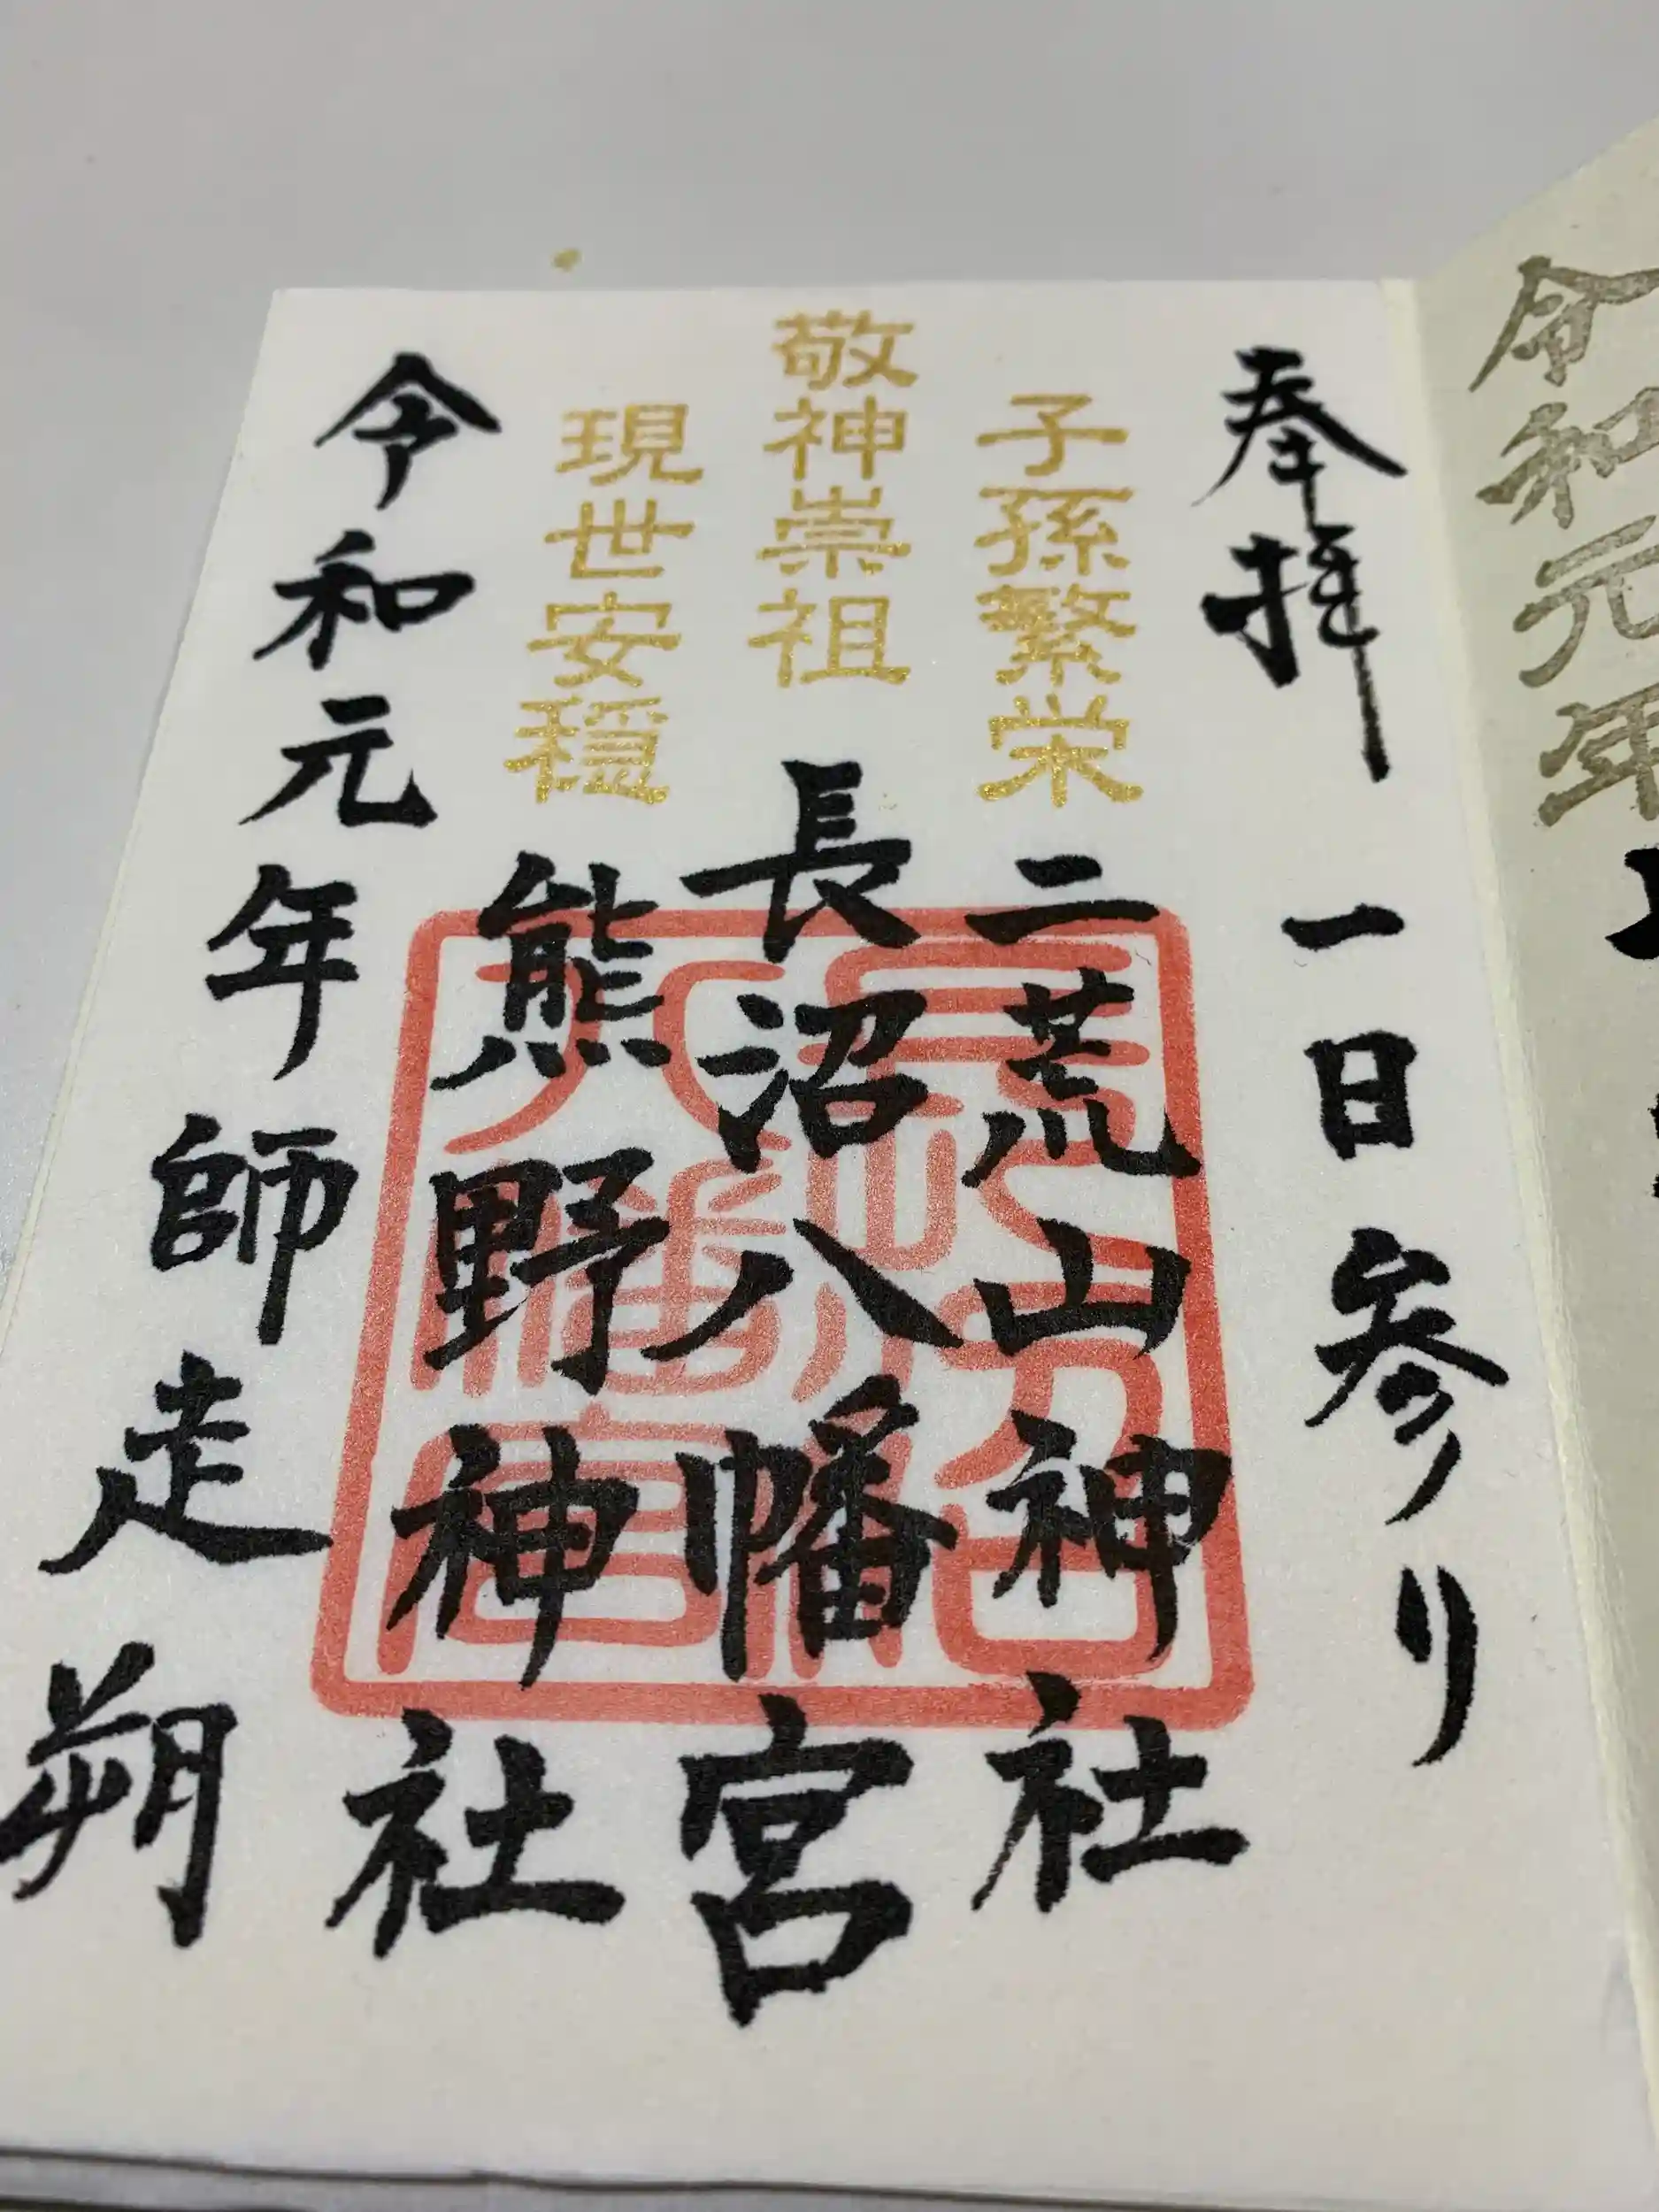 奉拝
一日参り
子孫繁栄
二荒山神社
敬神崇祖
長沼八幡宮
現世安穏
熊野神社
令和元年師走朔
令和元年